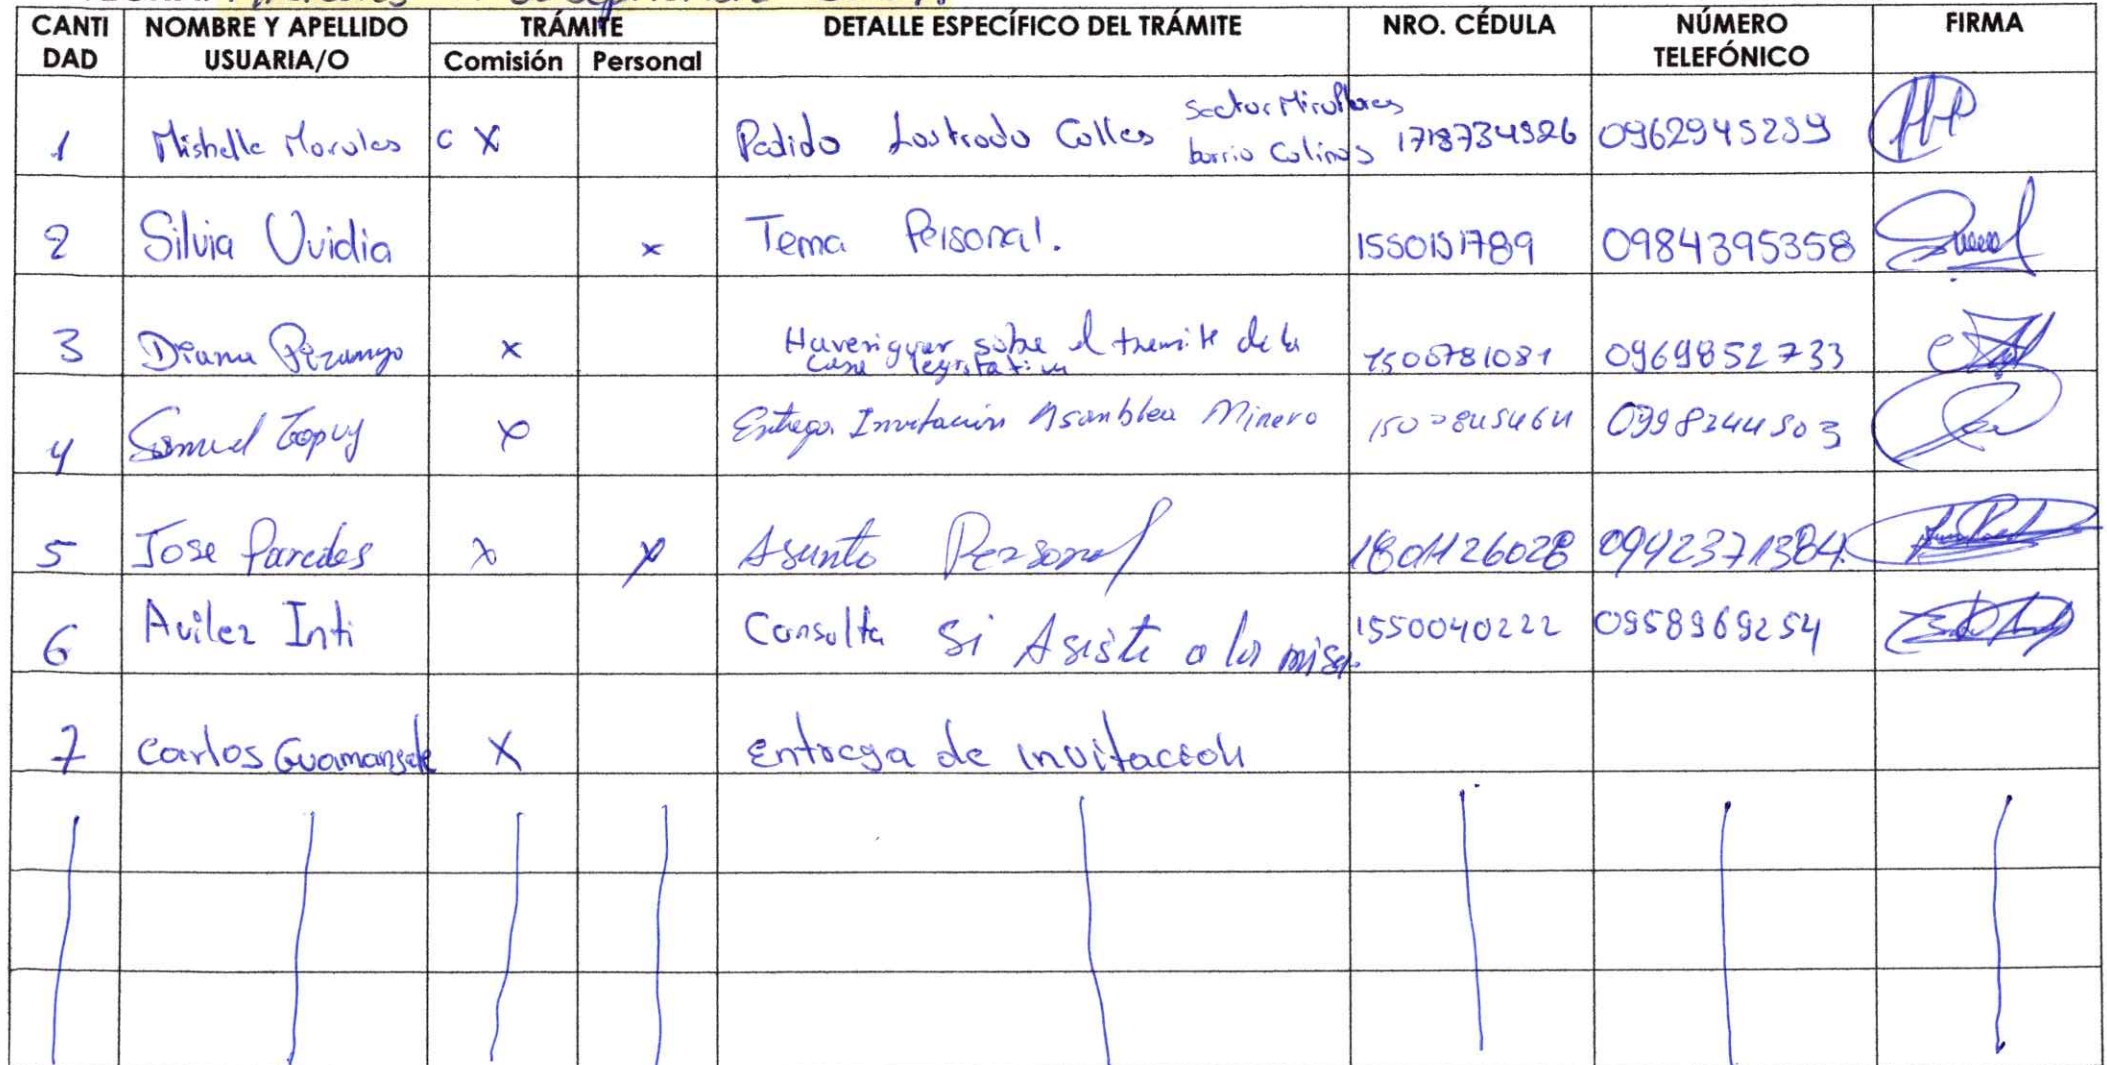 CANTI DAD NOMBRE Y APELLIDO USUARIA/O TRÁMITE Comisión Personal DETALLE ESPECÍFICO DEL TRÁMITE NRO. CÉDULA NÚMERO TELEFÓNICO FIRMA
1 Mishelle Morales c X Pedido Lastrado Calles sector Miraflores barrio Colinas 1718734926 0962945259
2 Silvia Uvidia x Tema Personal. 1550151789 0984395358
3 Diana x Haveriguar sobre el tramite de la
casa legislativa 1500781081 0969852733
4 Samuel Tapuy x Entrega Invitación Asamblea Minero 0998244503
5 Jose Paredes x x Asunto Personal 1801126028 0942371384
6 Avilez Inti Consulta si Asiste a la misa. 1550040222 0958969254
7 Carlos X Entrega de invitacion